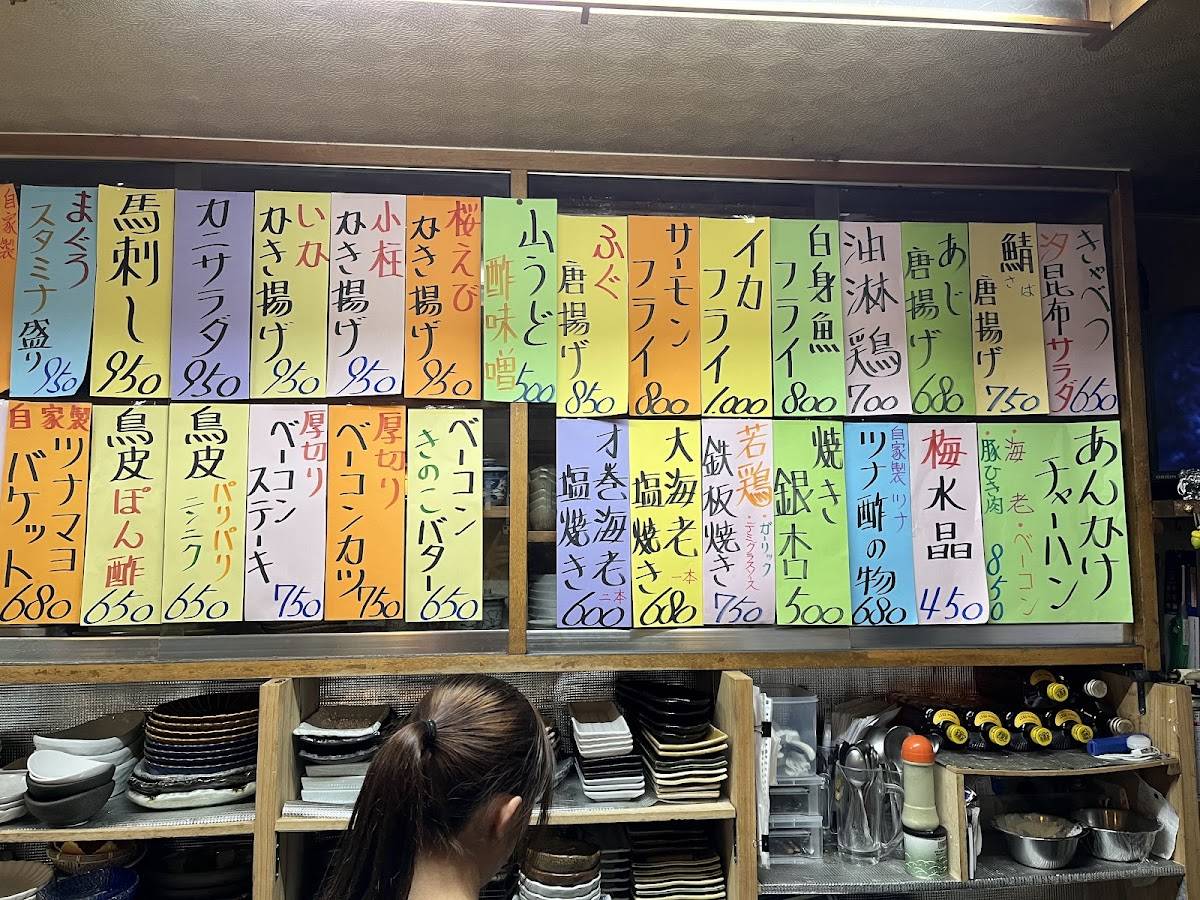 きゃべつ
汐昆布サラダ
650
鯖
さば
唐揚げ
750
あじ
唐揚げ
680
油淋鶏
700
白身魚
フライ
800
イカ
フライ
1,000
サーモン
フライ
800
ふぐ
唐揚げ
850
山うど
酢味噌
500
桜えび
かき揚げ
950
小柱
かき揚げ
950
いか
かき揚げ
950
カニサラダ
950
馬刺し
950
まぐろ
スタミナ盛り
950
自家製
あんかけ
チャーハン
・海老・ベーコン
・豚ひき肉
850
梅水晶
450
自家製ツナ
ツナ酢の物
680
焼き
銀杏
500
若鶏
・ガーリック
・デミグラスソース
鉄板焼き
750
大海老
塩焼き
一本
680
才巻海老
塩焼き
二本
600
ベーコン
きのこバター
650
厚切り
ベーコンカツ
750
厚切り
ベーコン
ステーキ
750
鳥皮
パリパリ
ニンニク
650
鳥皮
ぽん酢
650
自家製
ツナマヨ
バケット
680